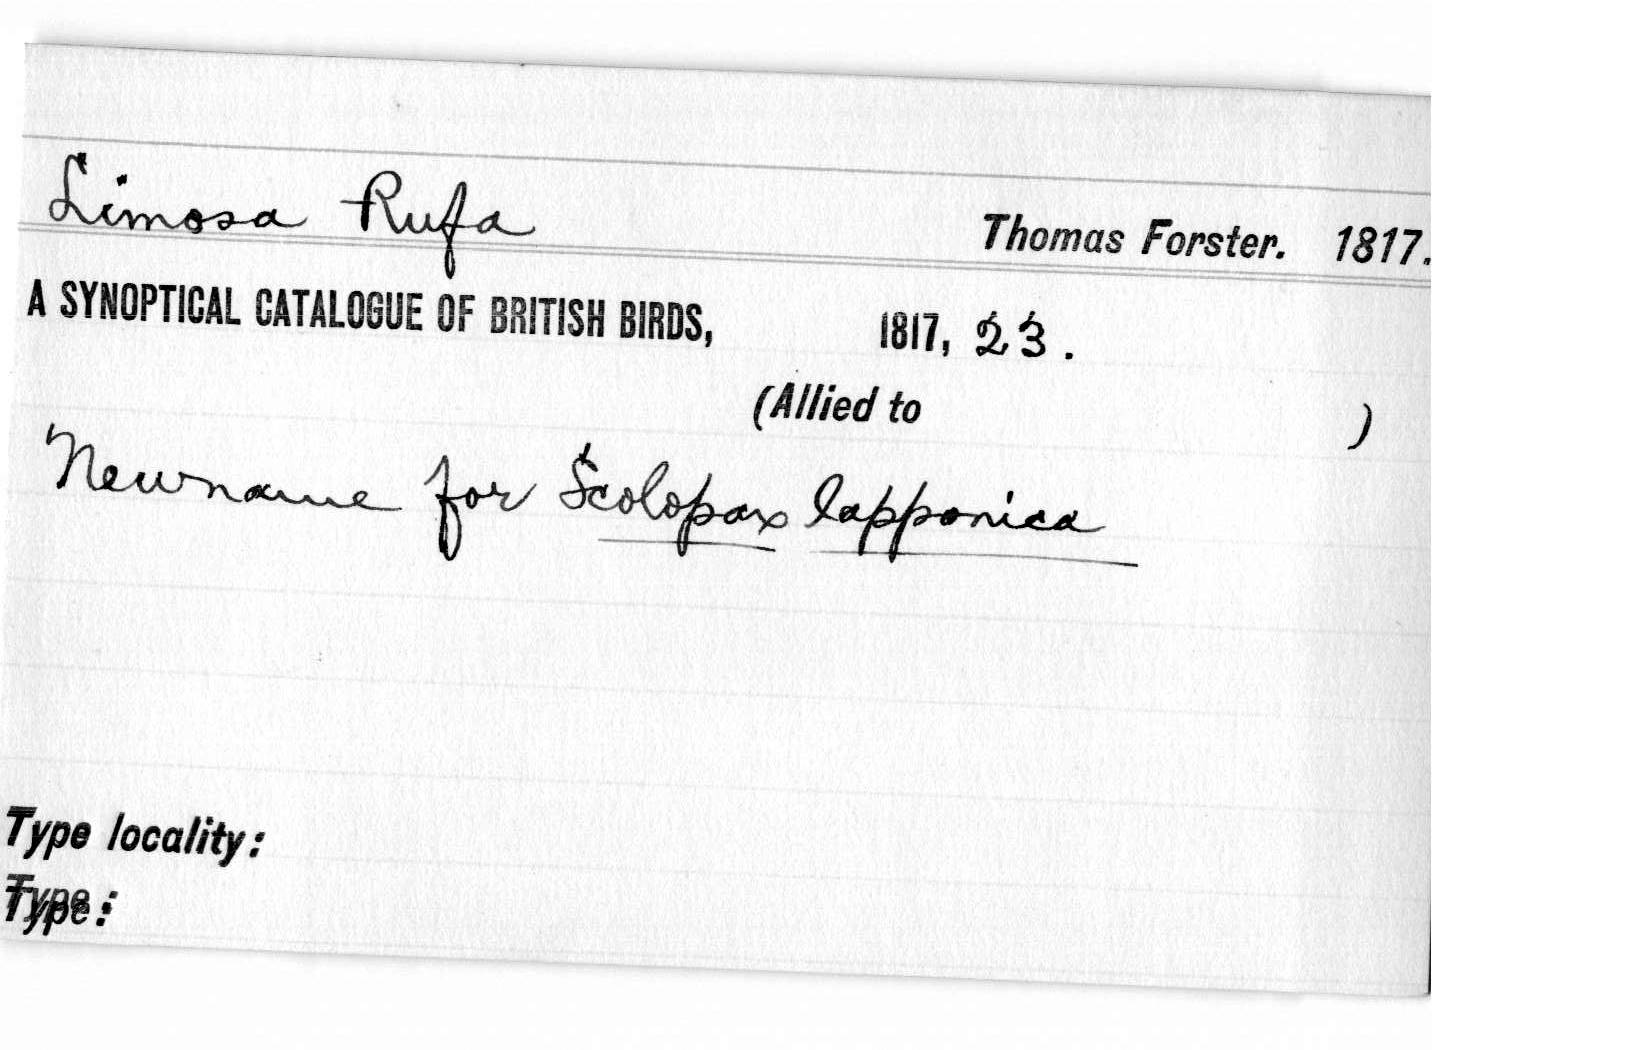 Limosa Rufa Thomas Forster. 1817.
A SYNOPTICAL CATALOGUE OF BRITISH BIRDS, 1817, 23.
(Allied to )
Newname for Scolopax lapponica
Type locality:
Type: